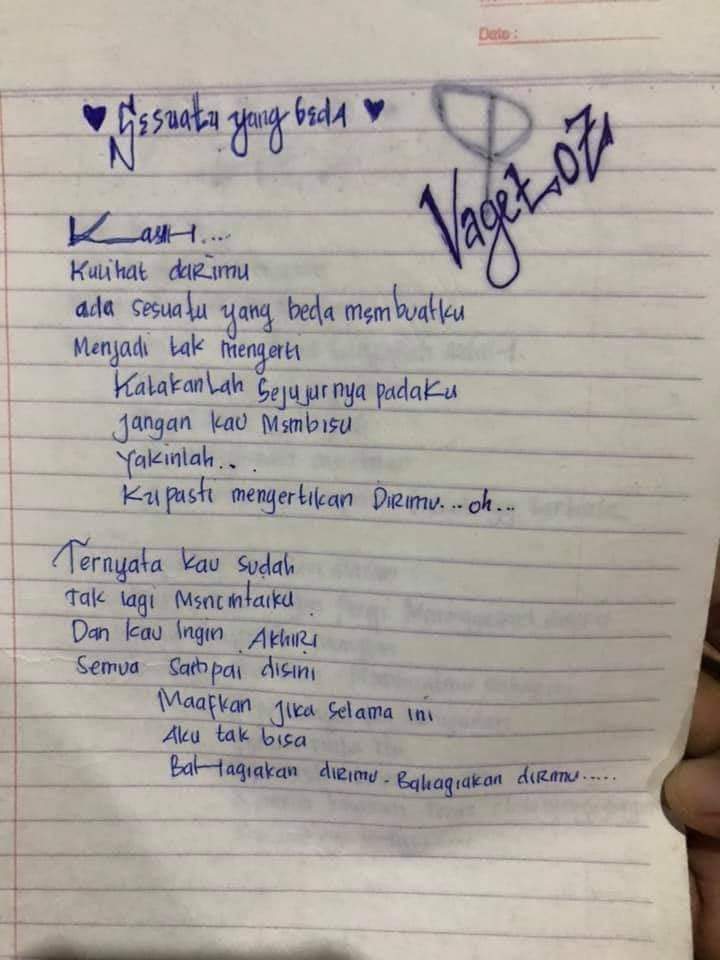 Date :
♥ Sesuatu yang beda ♥
Vagetoz
Kasih....
Kulihat darimu
ada sesuatu yang beda membuatku
Menjadi tak mengerti
Katakanlah sejujurnya padaku
jangan kau Membisu
Yakinlah...
Ku pasti mengertikan Dirimu... oh...
Ternyata kau sudah
Tak lagi Mencintaiku
Dan kau Ingin Akhiri
Semua Sampai disini
Maafkan jika selama ini
Aku tak bisa
Bahagiakan dirimu. Bahagiakan dirimu.....